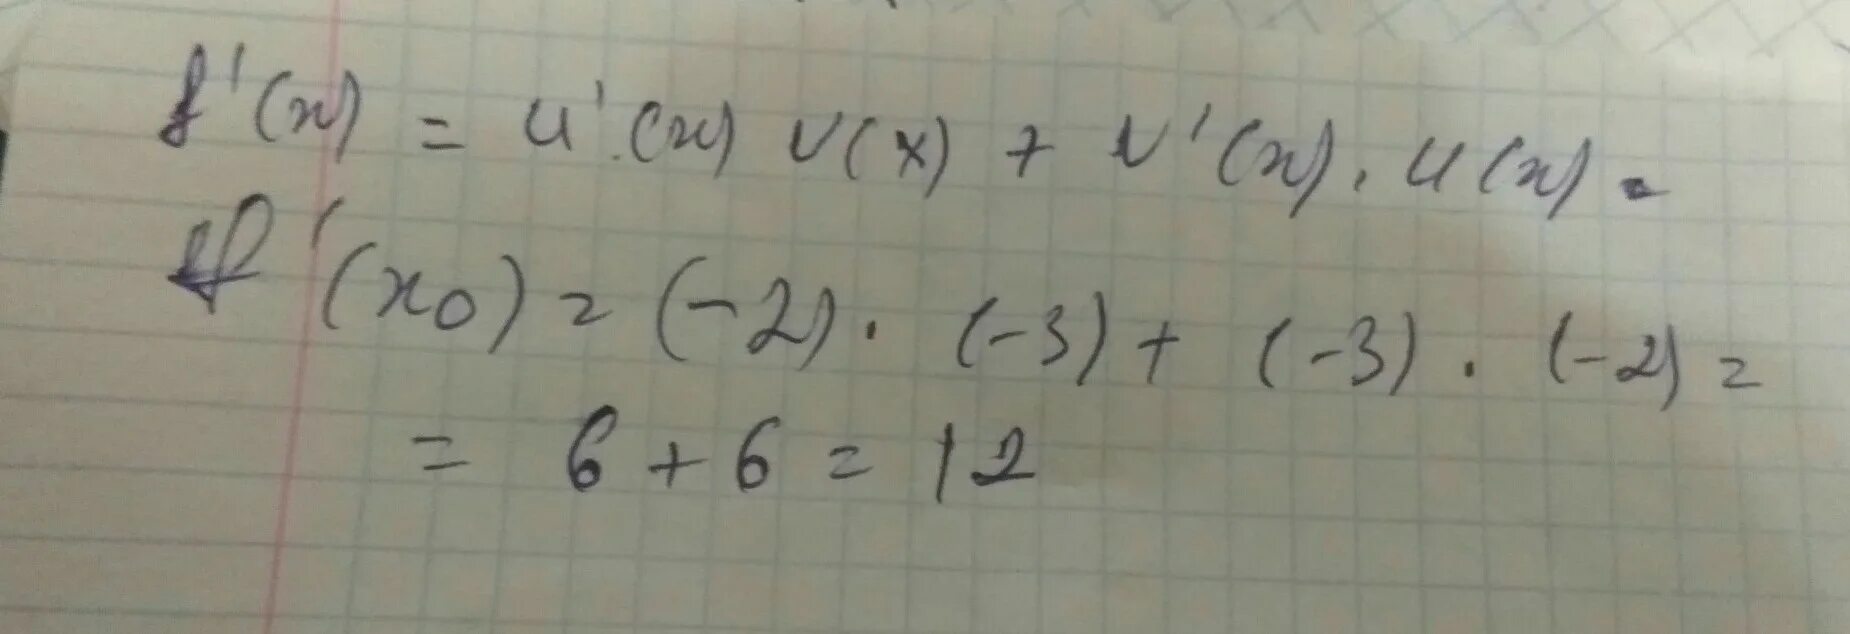 f'(x) = u'(x) v(x) + v'(x) · u(x) =
f'(x0) = (-2) · (-3) + (-3) · (-2) =
= 6 + 6 = 12